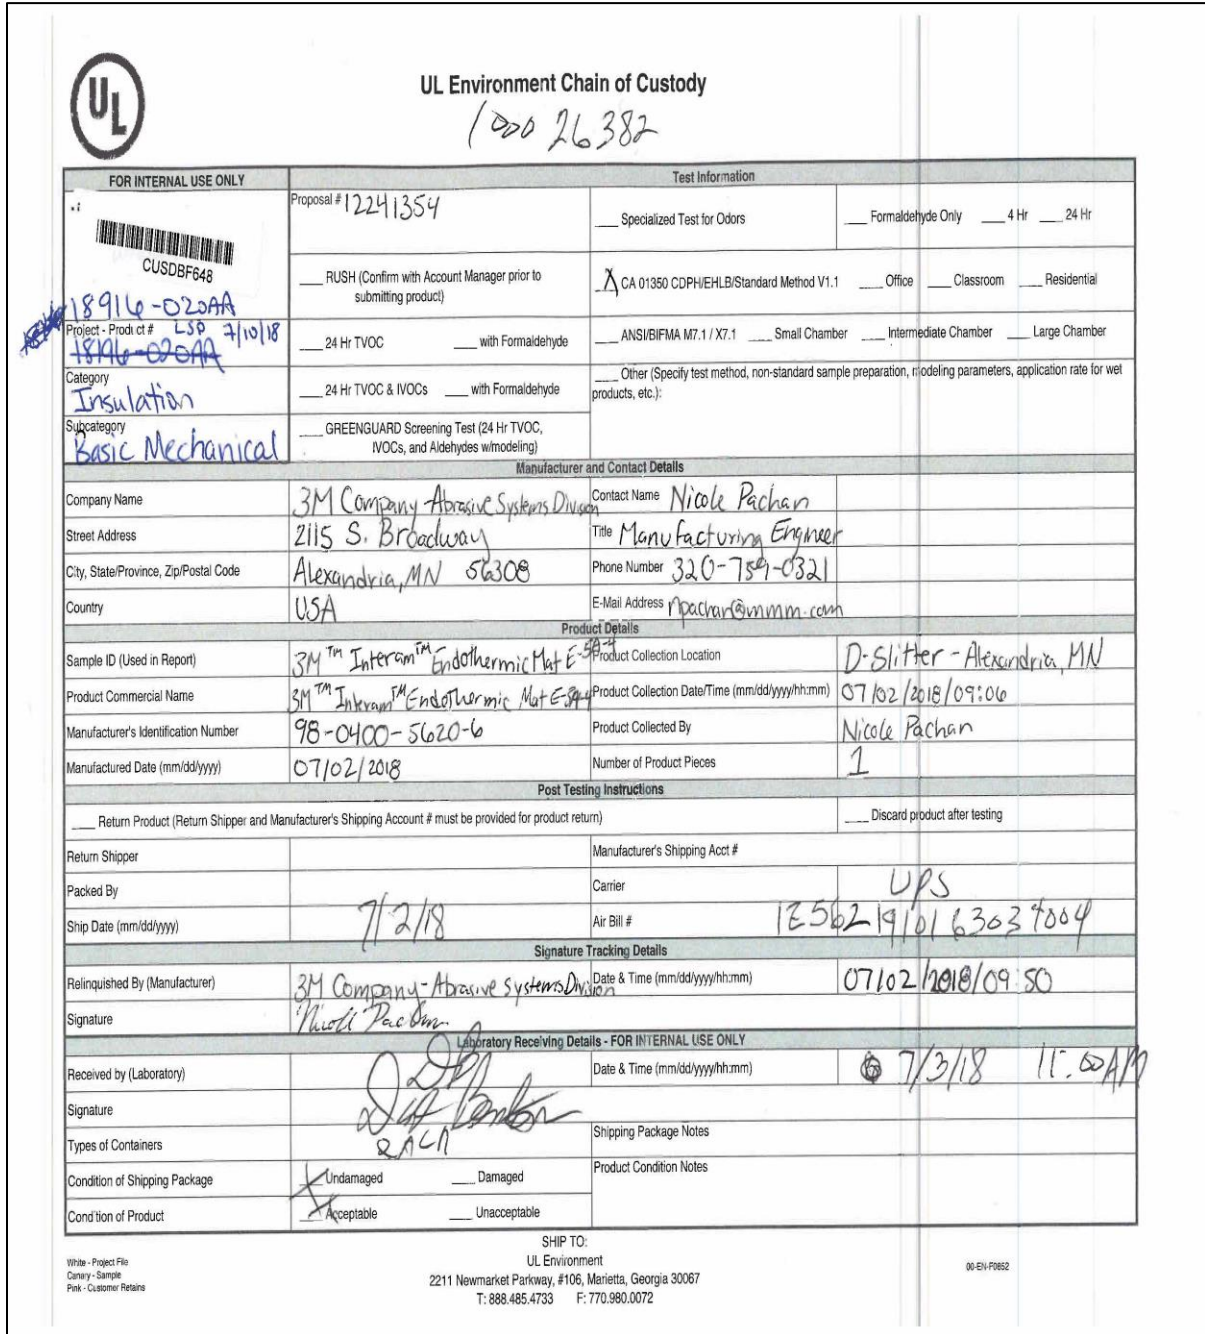 UL
UL Environment Chain of Custody
1000 26382
FOR INTERNAL USE ONLY
Test Information
CUSDBF648
18916-020AA
Project - Product # LSP 7/10/18
18196-020AA
Category
Insulation
Subcategory
Basic Mechanical
Proposal # 12241354
___ Specialized Test for Odors
___ Formaldehyde Only ___ 4 Hr ___ 24 Hr
___ RUSH (Confirm with Account Manager prior to
submitting product)
X CA 01350 CDPH/EHLB/Standard Method V1.1 ___ Office ___ Classroom ___ Residential
___ 24 Hr TVOC ___ with Formaldehyde
___ ANSI/BIFMA M7.1 / X7.1 ___ Small Chamber ___ Intermediate Chamber ___ Large Chamber
___ 24 Hr TVOC & IVOCs ___ with Formaldehyde
___ Other (Specify test method, non-standard sample preparation, modeling parameters, application rate for wet
products, etc.):
___ GREENGUARD Screening Test (24 Hr TVOC,
IVOCs, and Aldehydes w/modeling)
Manufacturer and Contact Details
Company Name 3M Company-Abrasive Systems Division Contact Name Nicole Pachan
Street Address 2115 S. Broadway Title Manufacturing Engineer
City, State/Province, Zip/Postal Code Alexandria, MN 56308 Phone Number 320-759-0321
Country USA E-Mail Address npachan@mmm.com
Product Details
Sample ID (Used in Report) 3M™ Interam™ Endothermic Mat E-5A-4 Product Collection Location D-Slitter - Alexandria, MN
Product Commercial Name 3M™ Interam™ Endothermic Mat E-5A-4 Product Collection Date/Time (mm/dd/yyyy/hh:mm) 07/02/2018/09:06
Manufacturer's Identification Number 98-0400-5620-6 Product Collected By Nicole Pachan
Manufactured Date (mm/dd/yyyy) 07/02/2018 Number of Product Pieces 1
Post Testing Instructions
___ Return Product (Return Shipper and Manufacturer's Shipping Account # must be provided for product return) ___ Discard product after testing
Return Shipper Manufacturer's Shipping Acct #
Packed By Carrier UPS
Ship Date (mm/dd/yyyy) 7/2/18 Air Bill #
Signature Tracking Details
Relinquished By (Manufacturer) 3M Company-Abrasive Systems Division Date & Time (mm/dd/yyyy/hh:mm) 07/02/2018/09:50
Signature Nicole Pachan
Laboratory Receiving Details - FOR INTERNAL USE ONLY
Received by (Laboratory) Date & Time (mm/dd/yyyy/hh:mm) 7/3/18 11:00AM
Signature
Types of Containers Shipping Package Notes
Condition of Shipping Package X Undamaged ___ Damaged Product Condition Notes
Condition of Product X Acceptable ___ Unacceptable
SHIP TO:
White - Project File
Canary - Sample
Pink - Customer Retains
UL Environment
2211 Newmarket Parkway, #106, Marietta, Georgia 30067
T: 888.485.4733 F: 770.980.0072
00-EN-F0852